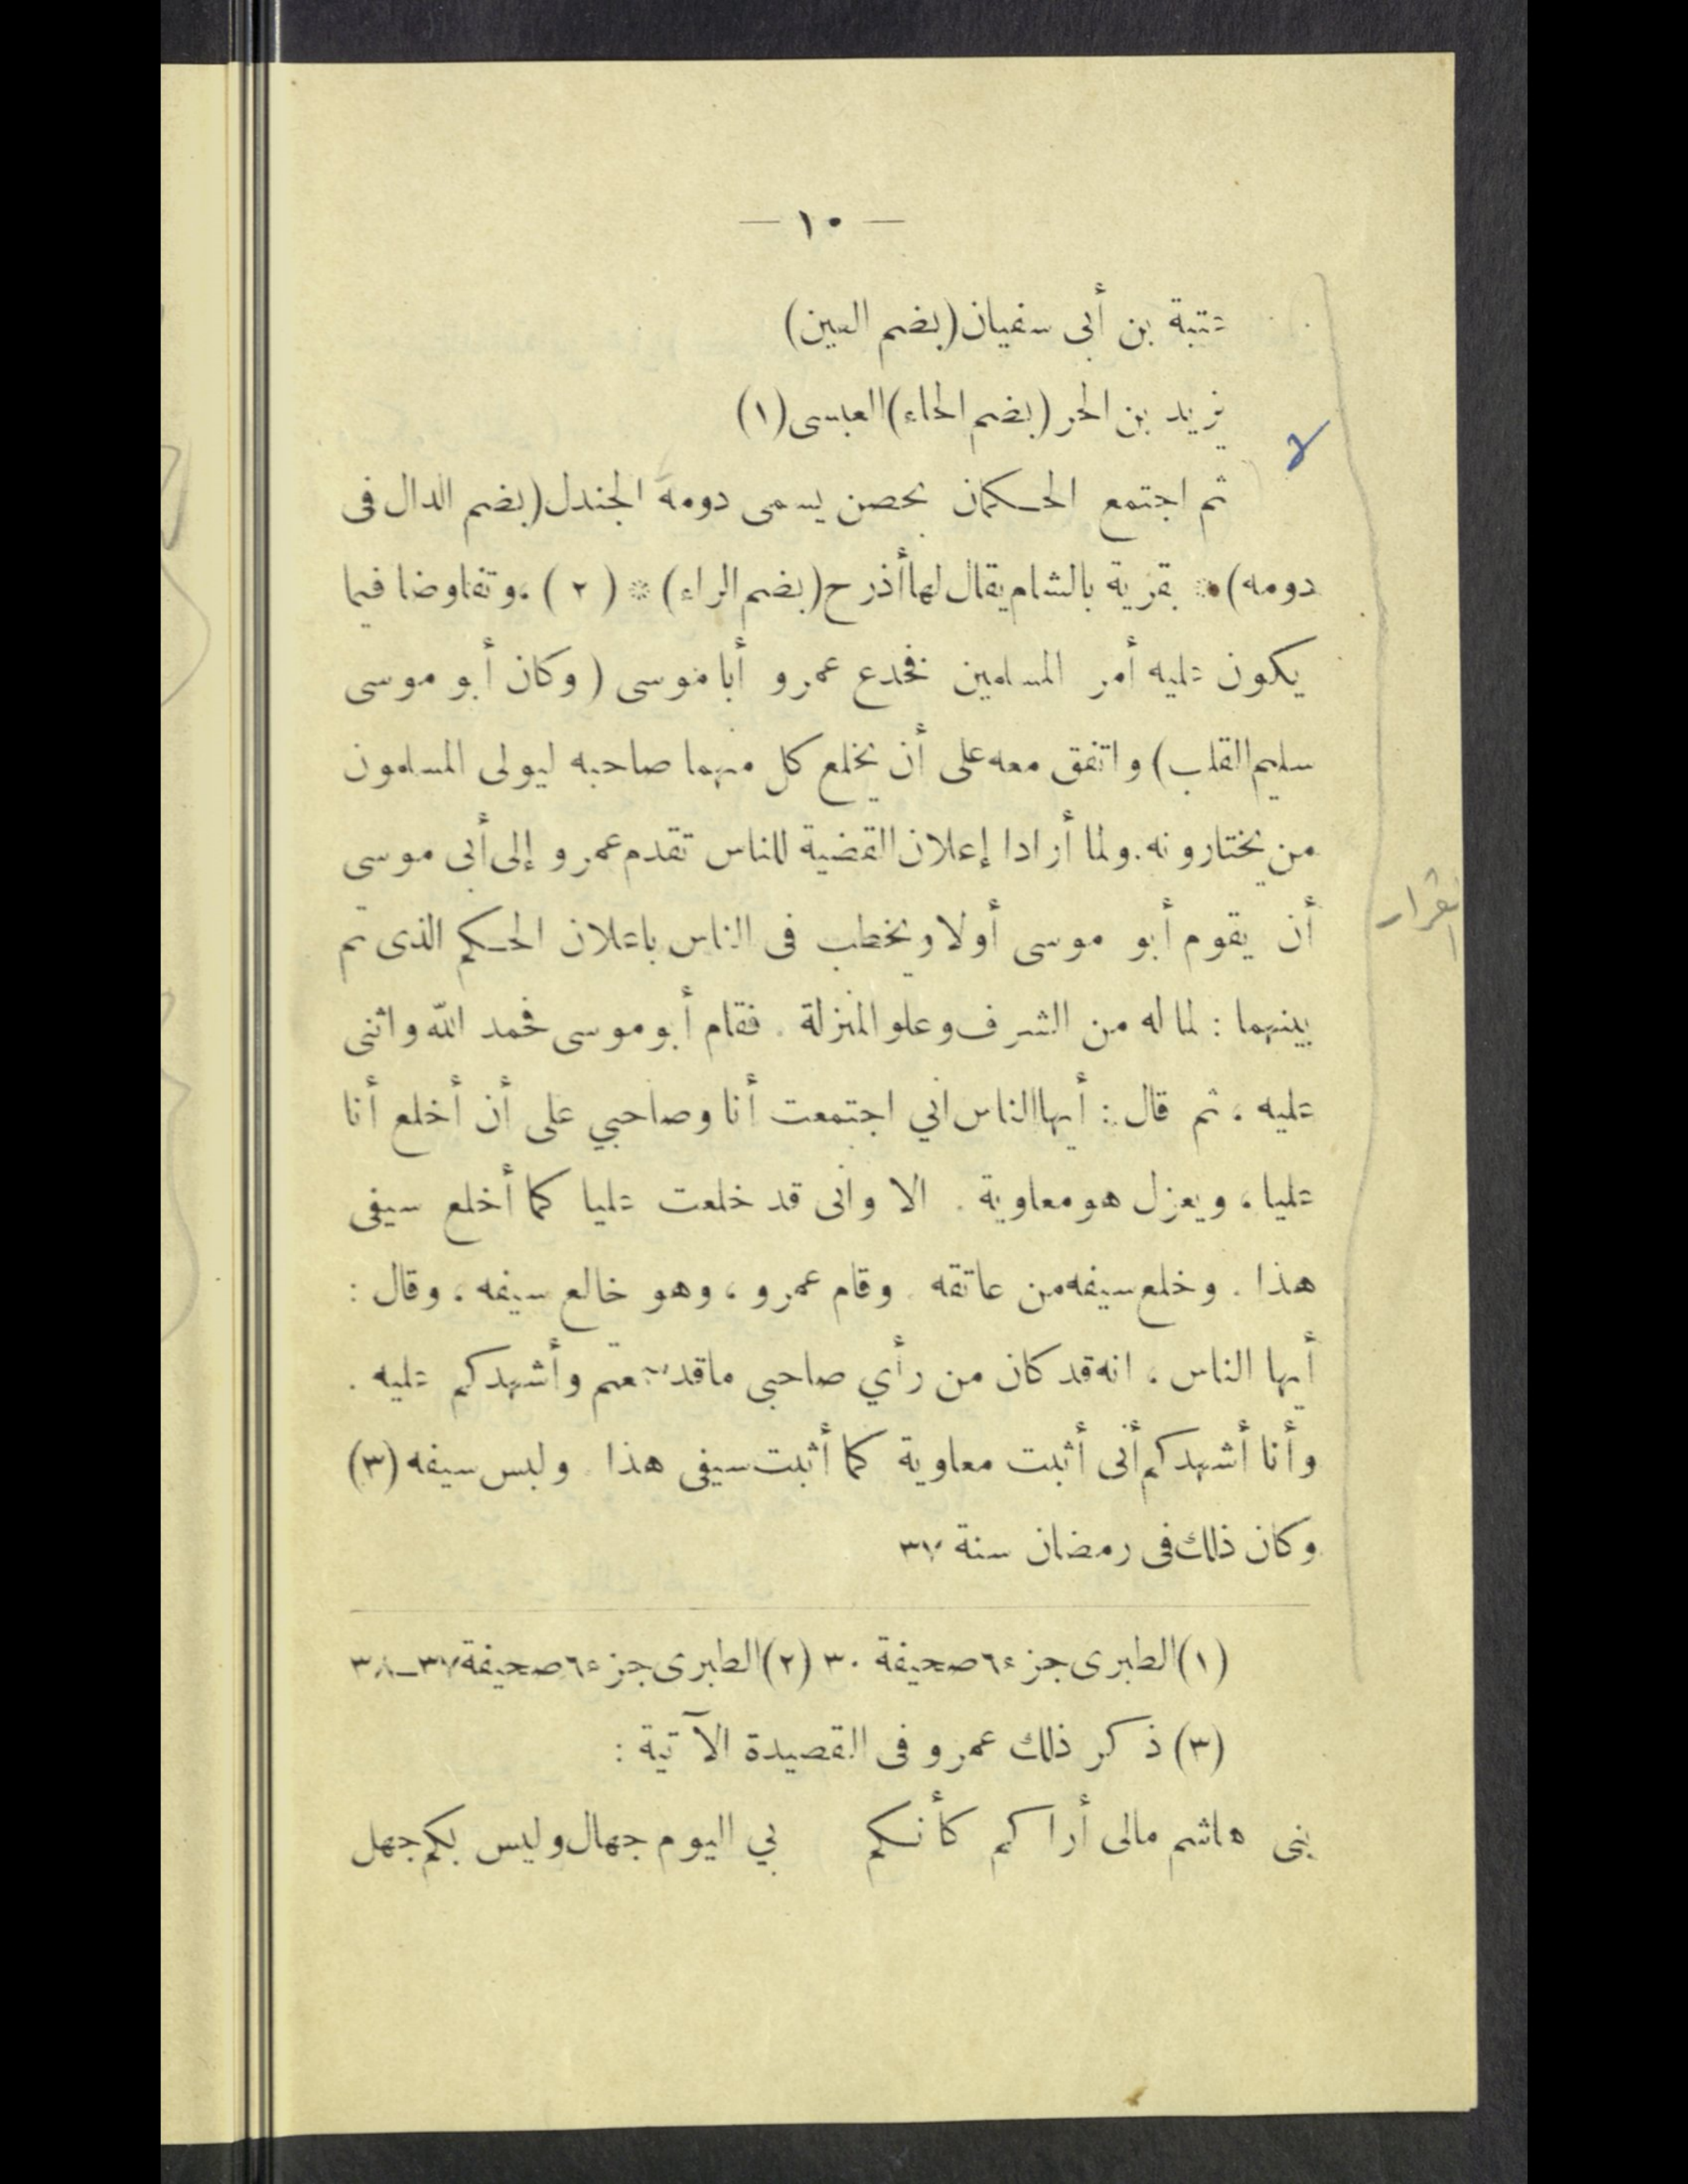 — ١٠ —
عتبة بن أبى سفيان (بضم العين)
يزيد بن الحر (بضم الحاء) العبسى (١)
ثم اجتمع الحكمان بحصن يسمى دومة الجندل (بضم الدال فى
دومه) * بقرية بالشام يقال لها أذرح (بضم الراء) * (٢) ، وتفاوضا فيما
يكون عليه أمر المسلمين فخدع عمرو أبا موسى (وكان أبو موسى
سليم القلب) واتفق معه على أن يخلع كل منهما صاحبه ليولى المسلمون
من يختارونه . ولما أرادا إعلان القضية للناس تقدم عمرو إلى أبى موسى
أن يقوم أبو موسى أولا ويخطب فى الناس باعلان الحكم الذى تم
بينهما : لما له من الشرف وعلو المنزلة . فقام أبو موسى فحمد الله واثنى
عليه ، ثم قال : أيها الناس انى اجتمعت أنا وصاحبي على أن أخلع أنا
عليا ، ويعزل هو معاوية . الا وأنى قد خلعت عليا كما أخلع سيفى
هذا . وخلع سيفه من عاتقه . وقام عمرو ، وهو خالع سيفه ، وقال :
أيها الناس ، انه قد كان من رأي صاحبى ما قد سمعتم وأشهدكم عليه .
وأنا أشهدكم أنى أثبت معاوية كما أثبت سيفى هذا . ولبس سيفه (٣)
وكان ذلك فى رمضان سنة ٣٧
(١) الطبرى جزء ٦ صحيفة ٣٠ (٢) الطبرى جزء ٦ صحيفة ٣٧ـ٣٨
(٣) ذكر ذلك عمرو فى القصيدة الآتية :
بنى هاشم مالى أراكم كأنكم بي اليوم جهال وليس بكم جهل